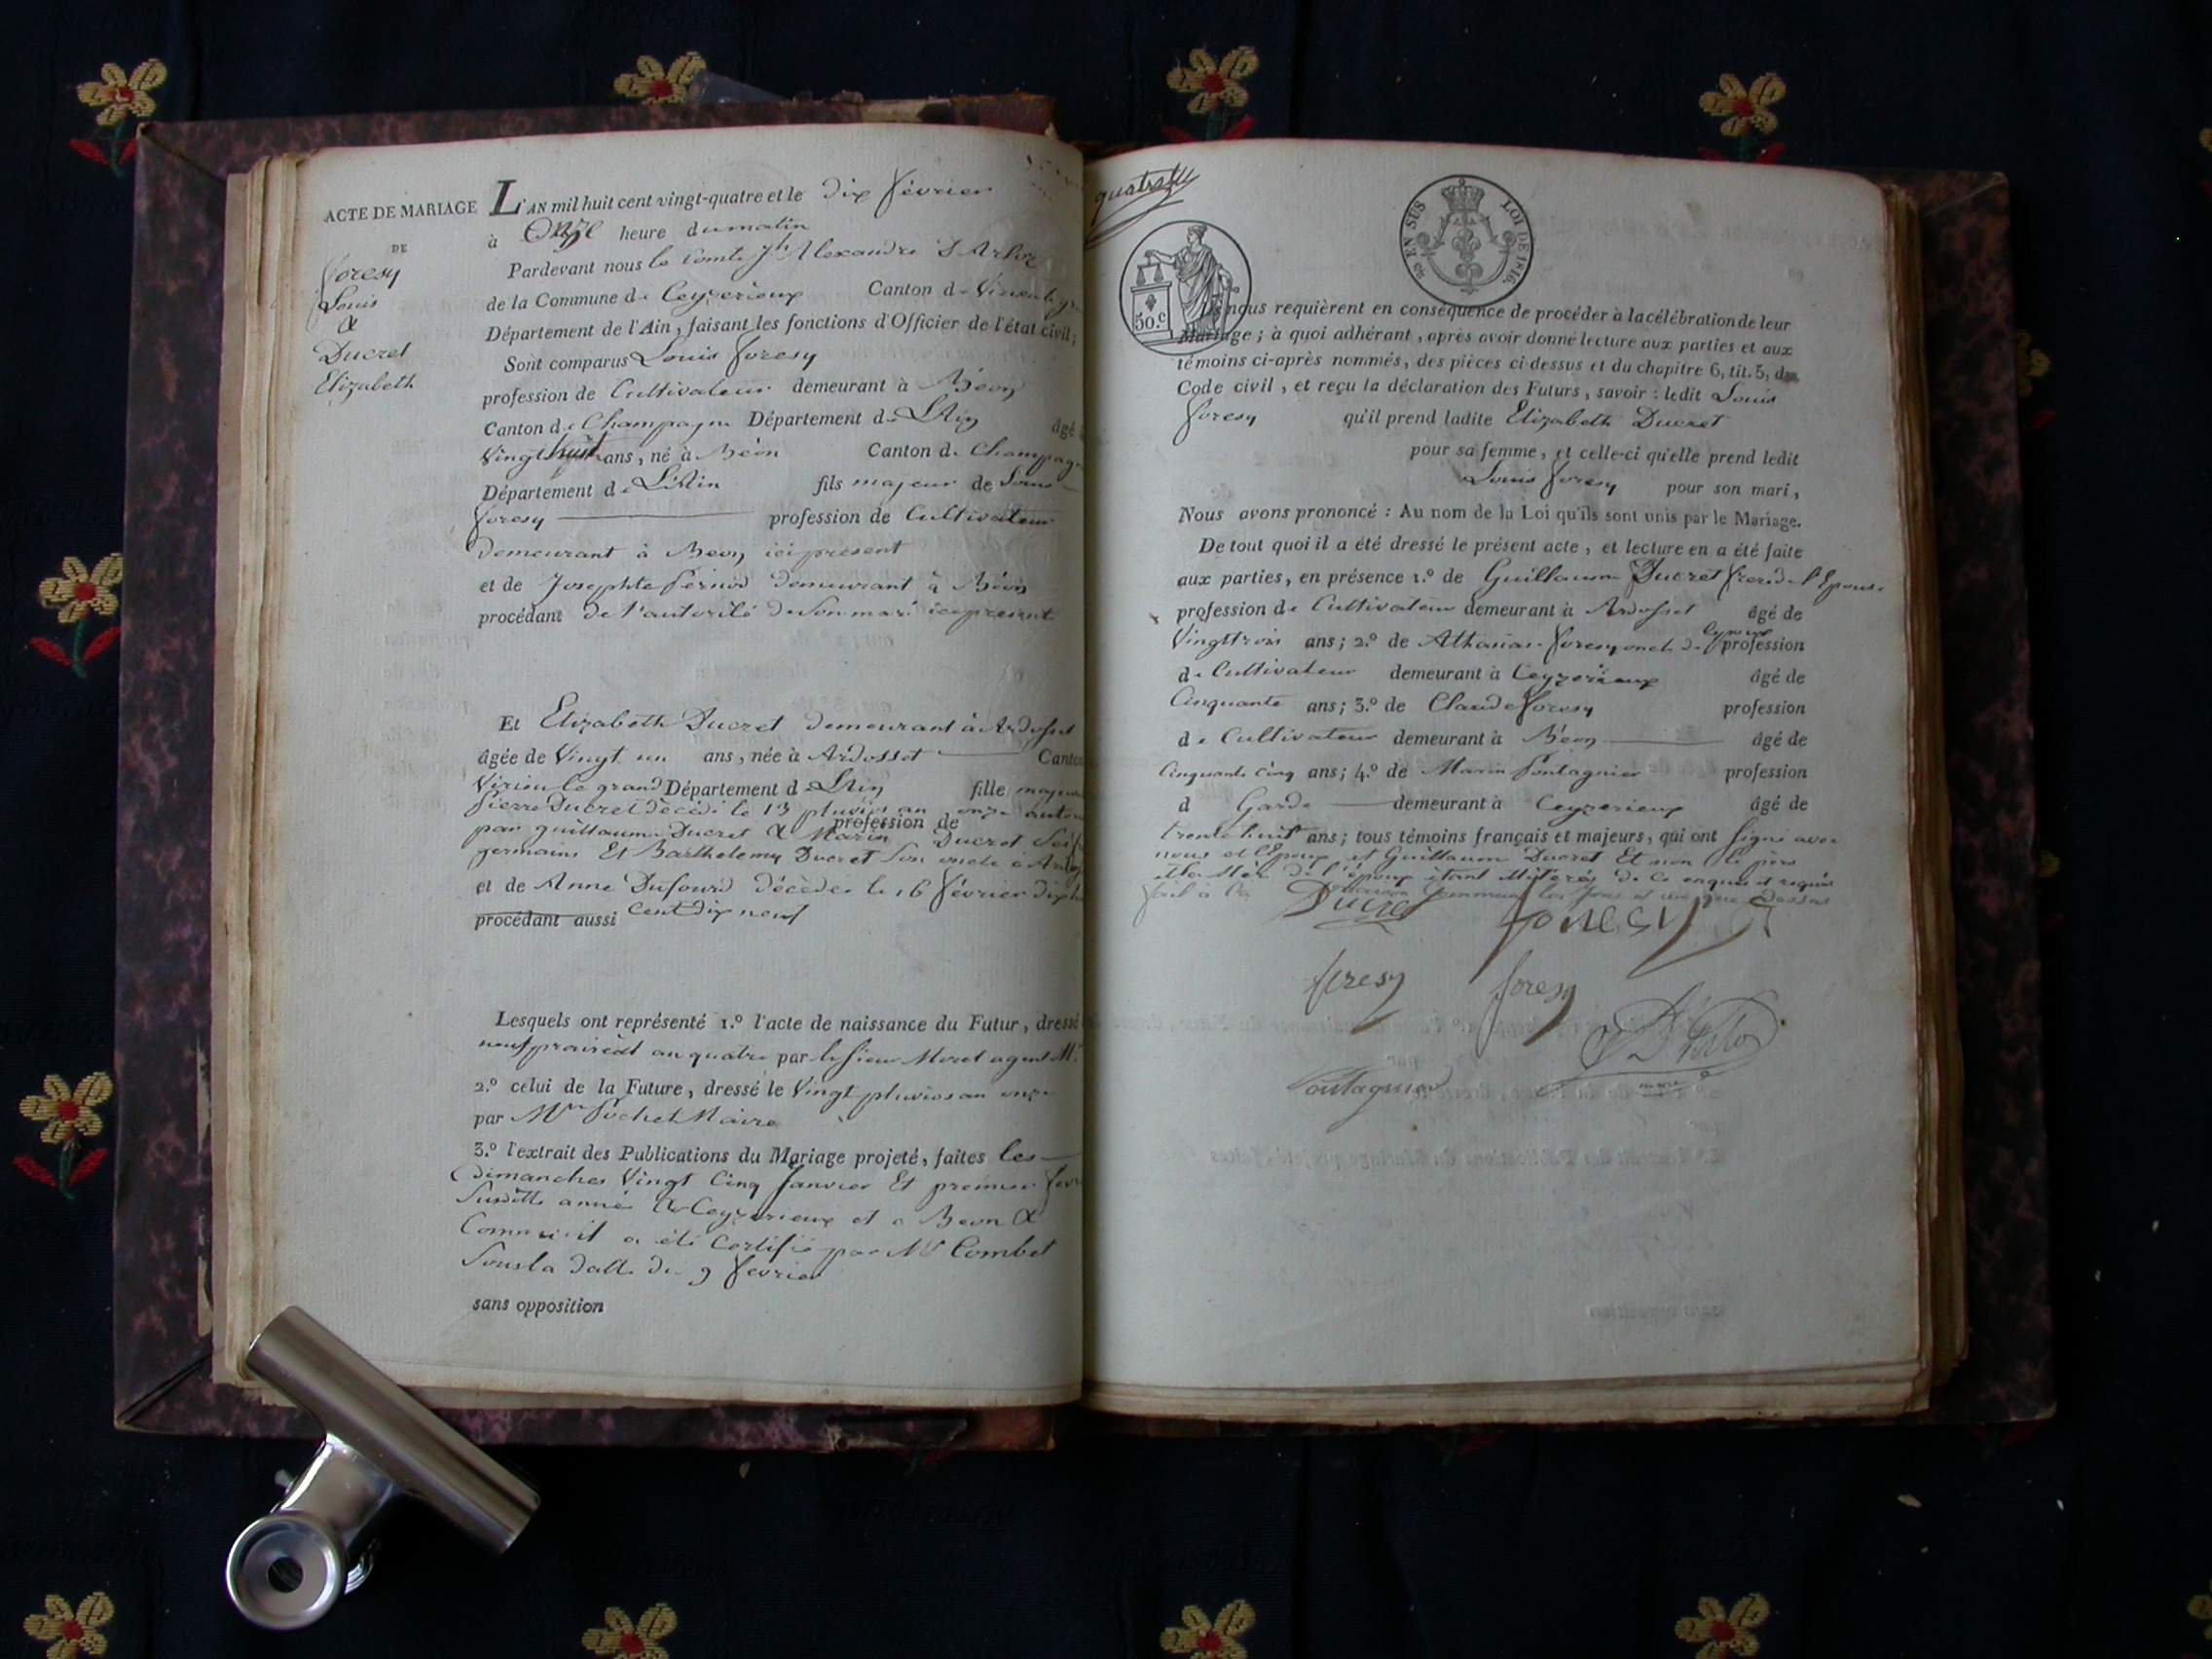 ACTE DE MARIAGE
DE
foresy
Louis
&
Ducret
Elizabeth
L'AN mil huit cent vingt-quatre et le dix février
à Onze heure du matin
Pardevant nous le Comte Jh Alexandre D'Arloz
de la Commune de Ceyzerieux Canton de Virieu le gr
Département de l'Ain, faisant les fonctions d'Officier de l'état civil;
Sont comparus Louis foresy
profession de Cultivateur demeurant à Béon
Canton de Champagne Département de L'Ain âgé
Vingt huit ans, né à Béon Canton de Champagn
Département de L'Ain fils majeur de Louis
foresy profession de Cultivateur
demeurant à Béon ici présent
et de Josephte Pernod demeurant à Béon
procédant de l'autorité de son mari ici présent
Et Elizabeth Ducret demeurant à Ardosset
âgée de Vingt un ans, née à Ardosset Canton
Virieu le grand Département d L'Ain fille majeur
pierre Ducret décédé le 13 pluvios an onze
profession de
par guillaume Ducret & Marin Ducret
germains Et Barthelemy Ducret son oncle à
et de Anne Dufourd décédée le 16 février dix h
procédant aussi cent dix neuf
Lesquels ont représenté 1.º l'acte de naissance du Futur, dressé
neuf prairéal an quatre par le sieur Moret agent M.
2.º celui de la Future, dressé le Vingt pluvios an onze
par Mr Pochet Maire
3.º l'extrait des Publications du Mariage projeté, faites les
dimanches Vingt Cinq Janvier Et premier fevr
Susditte année à Ceyzerieux et a Beon &
Comme il a été Certifié par Mr Combet
Sous la datte du 9 fevrier
sans opposition
50.C
EN SUS LOI DE 1816
nous requièrent en conséquence de procéder à la célébration de leur
Mariage; à quoi adhérant, après avoir donné lecture aux parties et aux
témoins ci-après nommés, des pièces ci-dessus et du chapitre 6, tit. 5, du
Code civil, et reçu la déclaration des Futurs, savoir: ledit Louis
foresy qu'il prend ladite Elizabeth Ducret
pour sa femme, et celle-ci qu'elle prend ledit
Louis foresy pour son mari,
Nous avons prononcé: Au nom de la Loi qu'ils sont unis par le Mariage.
De tout quoi il a été dressé le présent acte, et lecture en a été faite
aux parties, en présence 1.º de Guillaume Ducret frere de l'Epouse
profession de Cultivateur demeurant à Ardosset âgé de
Vingt trois ans; 2.º de Athanas foresy oncle de l'epoux profession
de Cultivateur demeurant à Ceyzerieux âgé de
Cinquante ans; 3.º de Claude foresy profession
de Cultivateur demeurant à Béon âgé de
Cinquante cinq ans; 4.º de Marin Pontagnier profession
d Garde demeurant à Ceyzerieux âgé de
trente huit ans; tous témoins français et majeurs, qui ont signé avec
nous et l'Epoux et Guillaume Ducret Et non le père
et la Mère de l'époux étant illiterés de ce enquis et requis
fait à la maison Commune les jour et an que dessus
Ducret
foresy
foresy
foresy
D'Arloz
maire
Pontagnier